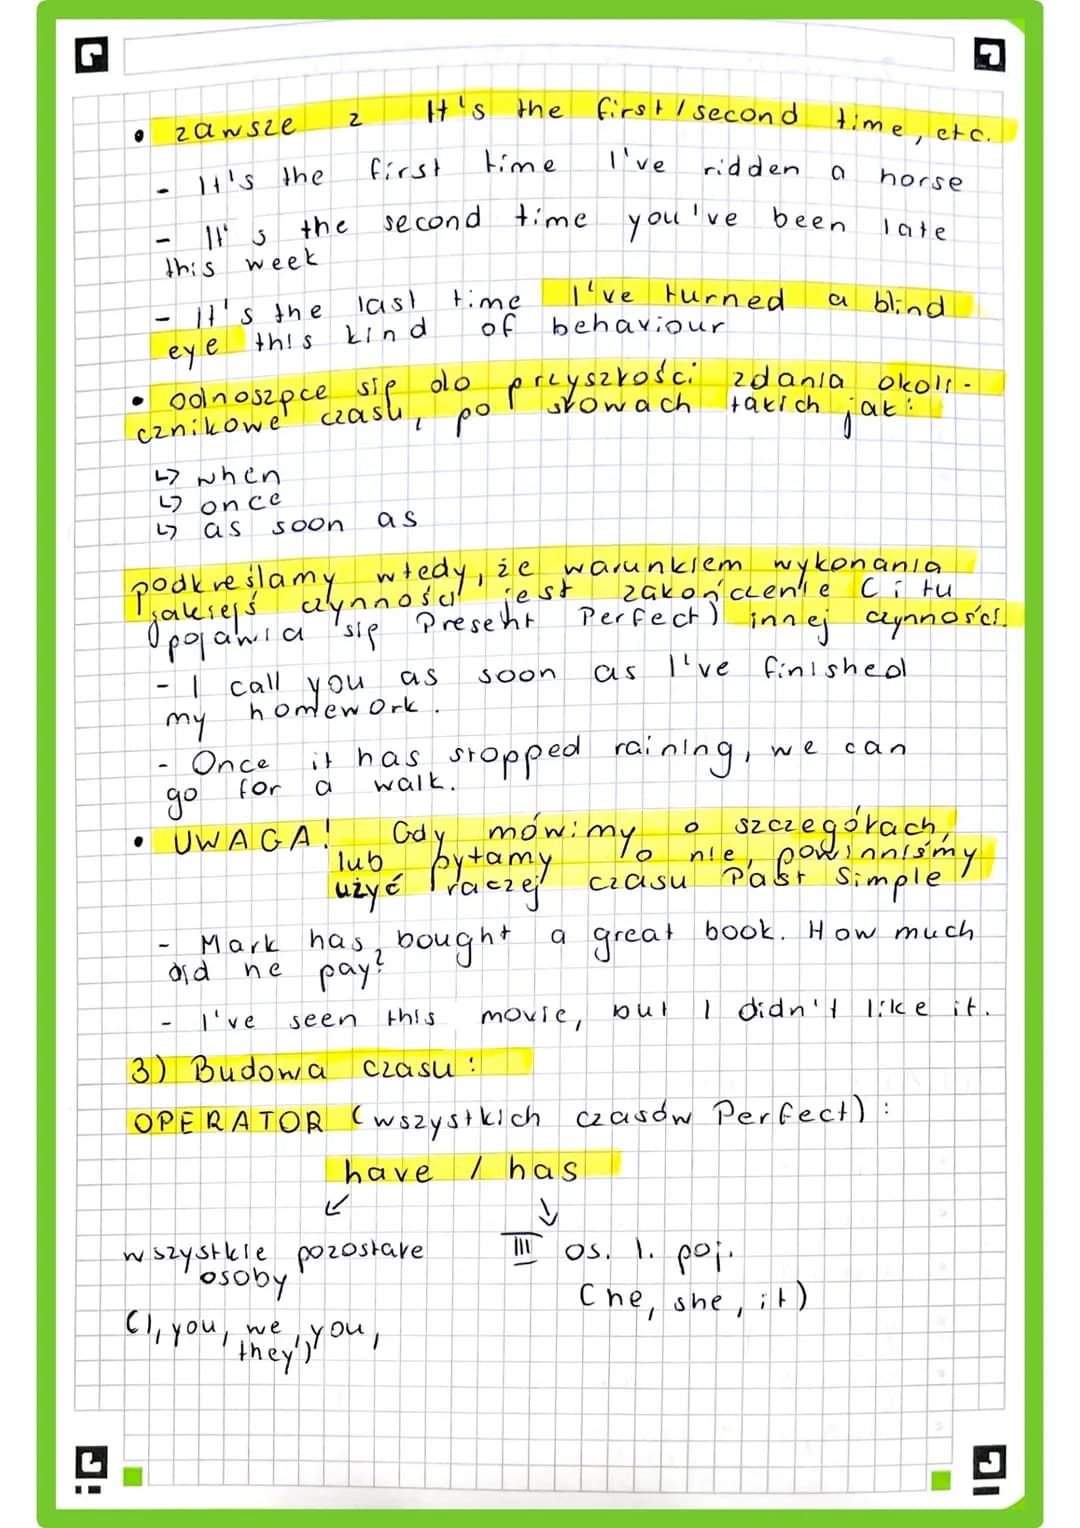 • zawsze z It's the first/second time, etc.
- It's the first time I've ridden a horse
- It's the second time you've been late
this week
- It's the last time I've turned a blind
eye this kind of behaviour
• odnoszące się do przyszłości zdania okoli-
cznikowe czasu, po słowach takich jak:
↳ when
↳ once
↳ as soon as
podkreślamy wtedy, że warunkiem wykonania
jakiejś czynności jest zakończenie (i tu
pojawia się Present Perfect) innej czynności.
- I call you as soon as I've finished
my homework.
- Once it has stopped raining, we can
go for a walk.
• UWAGA! Gdy mówimy o szczegółach,
lub pytamy o nie, powinniśmy
użyć raczej czasu Past Simple
- Mark has bought a great book. How much
did he pay?
- I've seen this movie, but I didn't like it.
3) Budowa czasu:
OPERATOR (wszystkich czasów Perfect):
have / has
wszystkie pozostałe III os. l. poj.
osoby (he, she, it)
(I, you, we, you,
they)